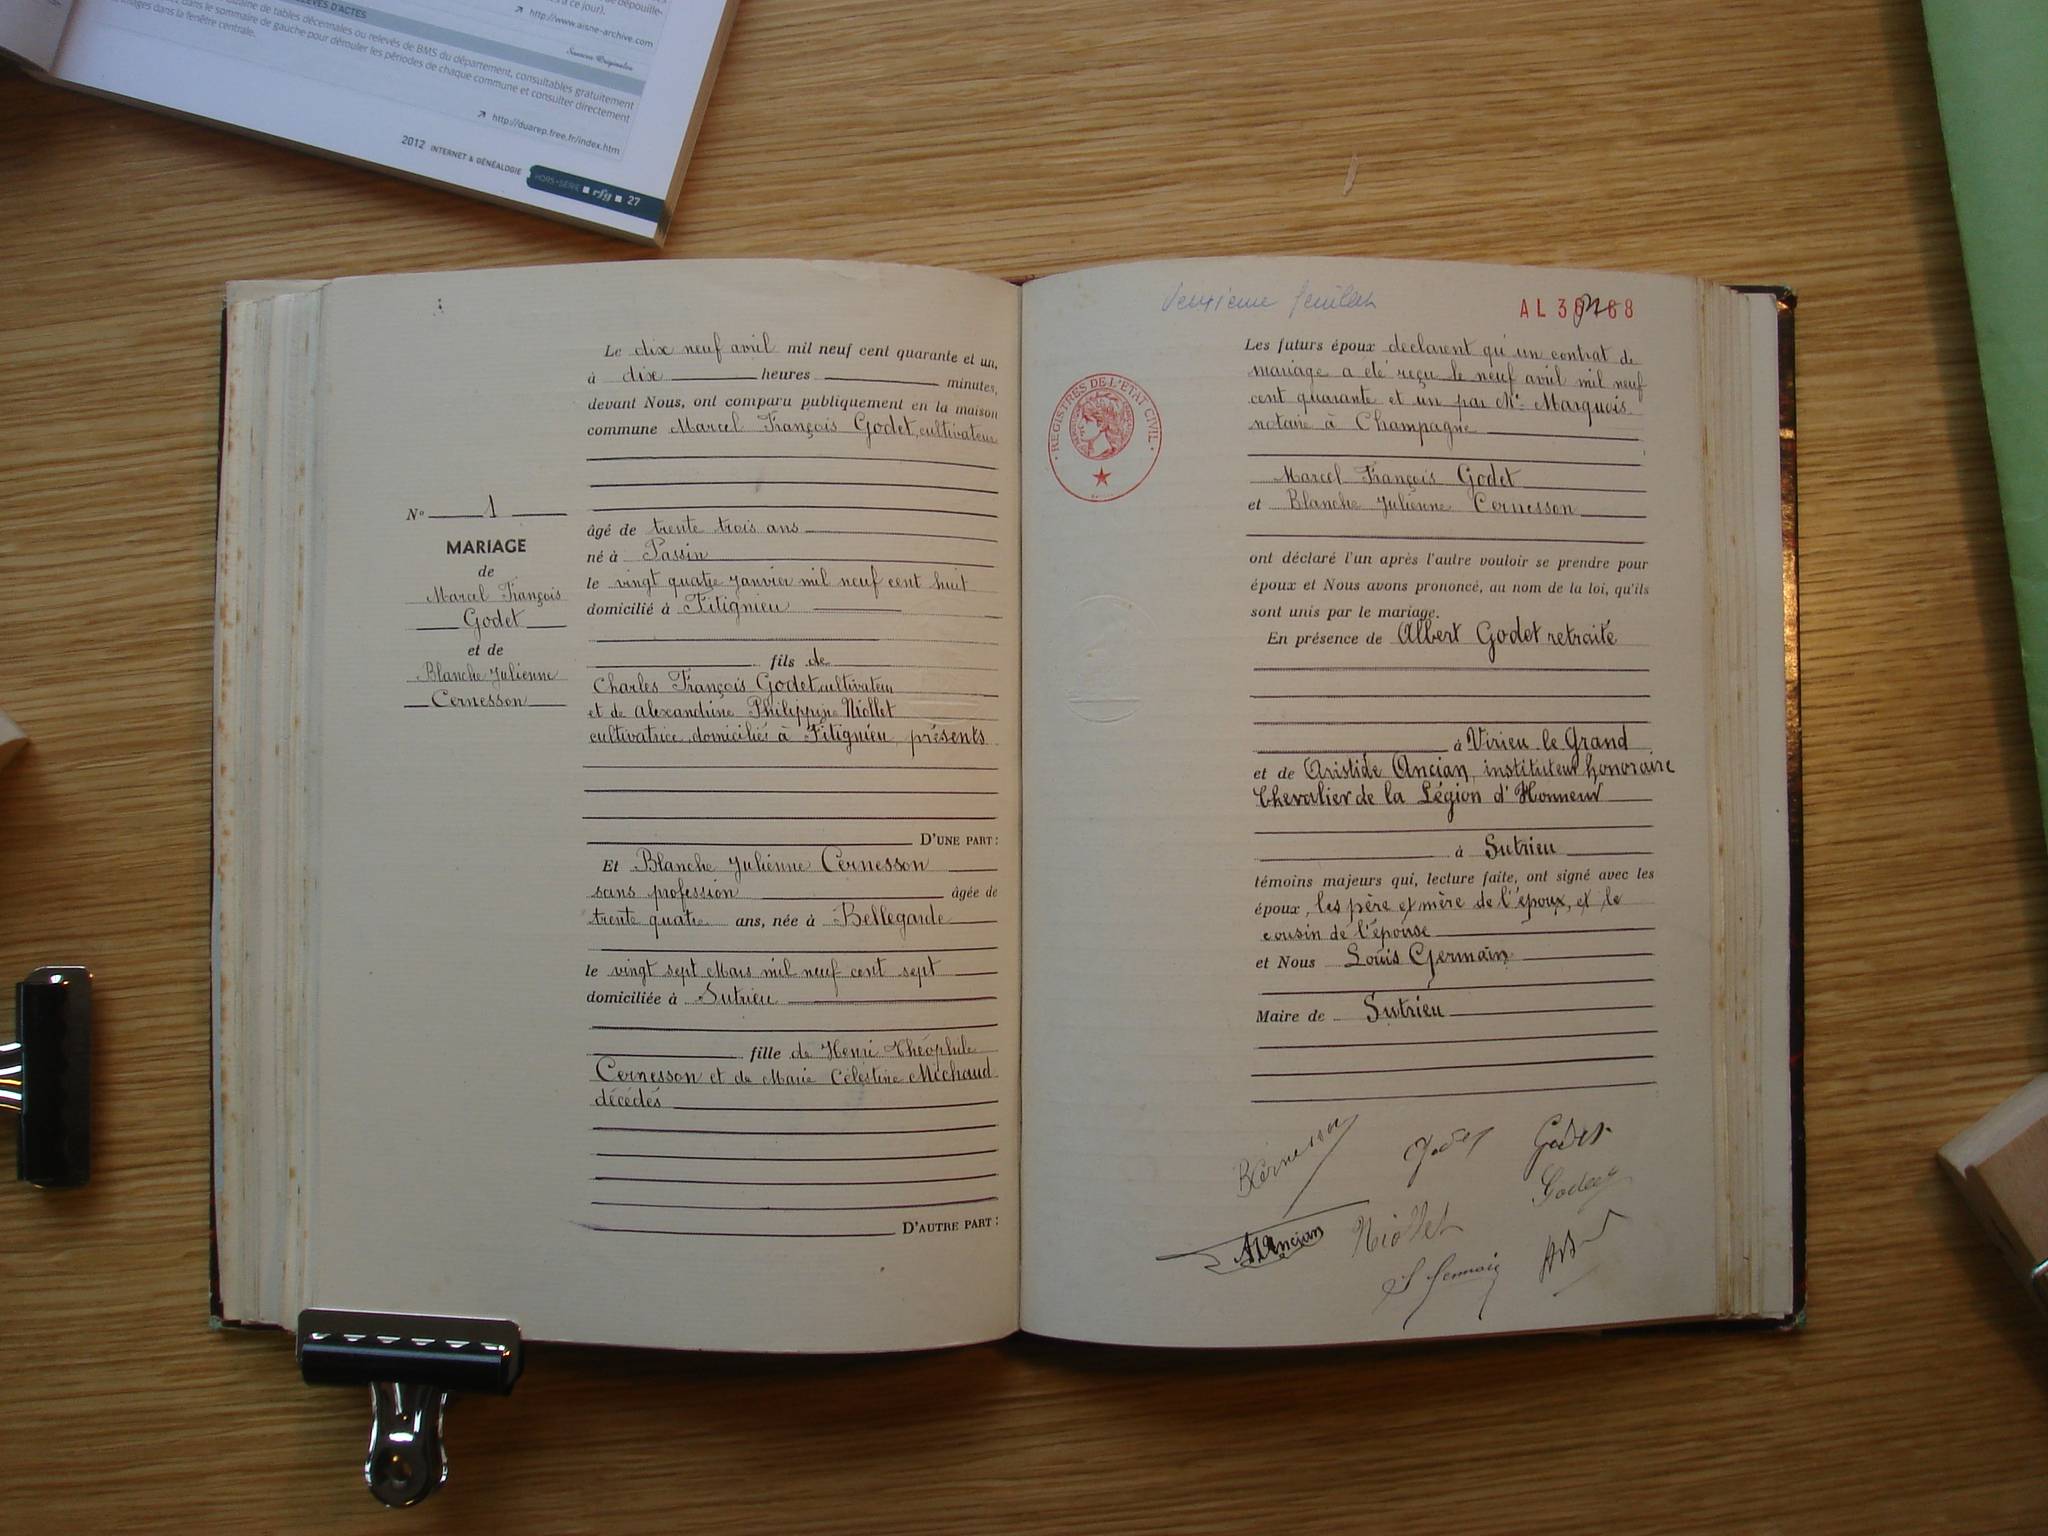 RELEVÉS D'ACTES
de tables décennales ou relevés de BMS du département, consultables gratuitement
dans le sommaire de gauche pour dérouler les périodes de chaque commune et consulter directement
images dans la fenêtre centrale.
à ce jour).
http://www.aisne-archive.com
http://duarep.free.fr/index.htm
2012 INTERNET & GÉNÉALOGIE HORS-SÉRIE rfg 27
Le dix neuf avril mil neuf cent quarante et un,
à dix heures minutes,
devant Nous, ont comparu publiquement en la maison
commune Marcel François Godet, cultivateur
âgé de trente trois ans
né à Passin
le vingt quatre janvier mil neuf cent huit
domicilié à Fitignieu
fils de
Charles François Godet, cultivateur
et de Alexandrine Philippine Niollet
cultivatrice, domiciliés à Fitignieu, présents
D'UNE PART :
Et Blanche Julienne Cernesson
sans profession âgée de
trente quatre ans, née à Bellegarde
le vingt sept Mars mil neuf cent sept
domiciliée à Sutrieu
fille de Henri Théophile
Cernesson et de Marie Célestine Michaud
décédés
D'AUTRE PART :
No 1
MARIAGE
de
Marcel François
Godet
et de
Blanche Julienne
Cernesson
deuxième feuillet
AL 36
68
REGISTRES DE L'ETAT CIVIL
Les futurs époux déclarent qu'un contrat de
mariage a été reçu le neuf avril mil neuf
cent quarante et un par Me Marquois
notaire à Champagne
Marcel François Godet
et Blanche Julienne Cernesson
ont déclaré l'un après l'autre vouloir se prendre pour
époux et Nous avons prononcé, au nom de la loi, qu'ils
sont unis par le mariage.
En présence de Albert Godet retraité
à Virieu le Grand
et de Aristide Ancian, instituteur honoraire
Chevalier de la Légion d'Honneur
à Sutrieu
témoins majeurs qui, lecture faite, ont signé avec les
époux, les père et mère de l'époux, et le
cousin de l'épouse
et Nous Louis Germain
Maire de Sutrieu
BCernesson
Godet
Godet
Godet
AAncian
Niollet
L Germain